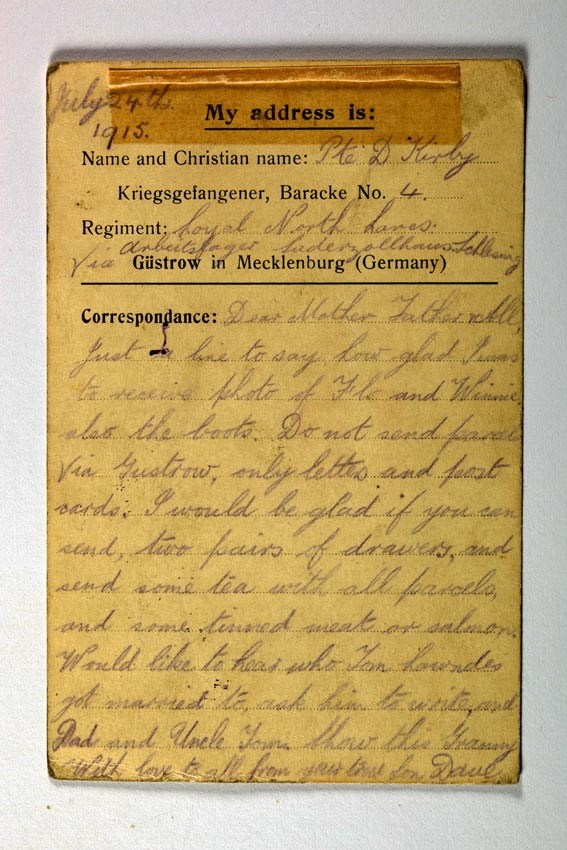 July 24th
1915.
My address is:
Name and Christian name: Pte D Kirby
Kriegsgefangener, Baracke No. 4.
Regiment: Loyal North Lancs.
Via Arbeitslager Süderzollhaus Schleswig
Güstrow in Mecklenburg (Germany)
Correspondance: Dear Mother Father & All,
Just a line to say how glad I was
to receive photo of Flo and Winnie
also the boots. Do not send parcels
via Gustrow, only letters and post
cards. I would be glad if you can
send, two pairs of drawers, and
send some tea with all parcels,
and some tinned meat or salmon.
Would like to hear who Tom Lowndes
got married to, ask him to write, and
Dad and Uncle Tom. Show this Granny
With love to all from your true Son Dave